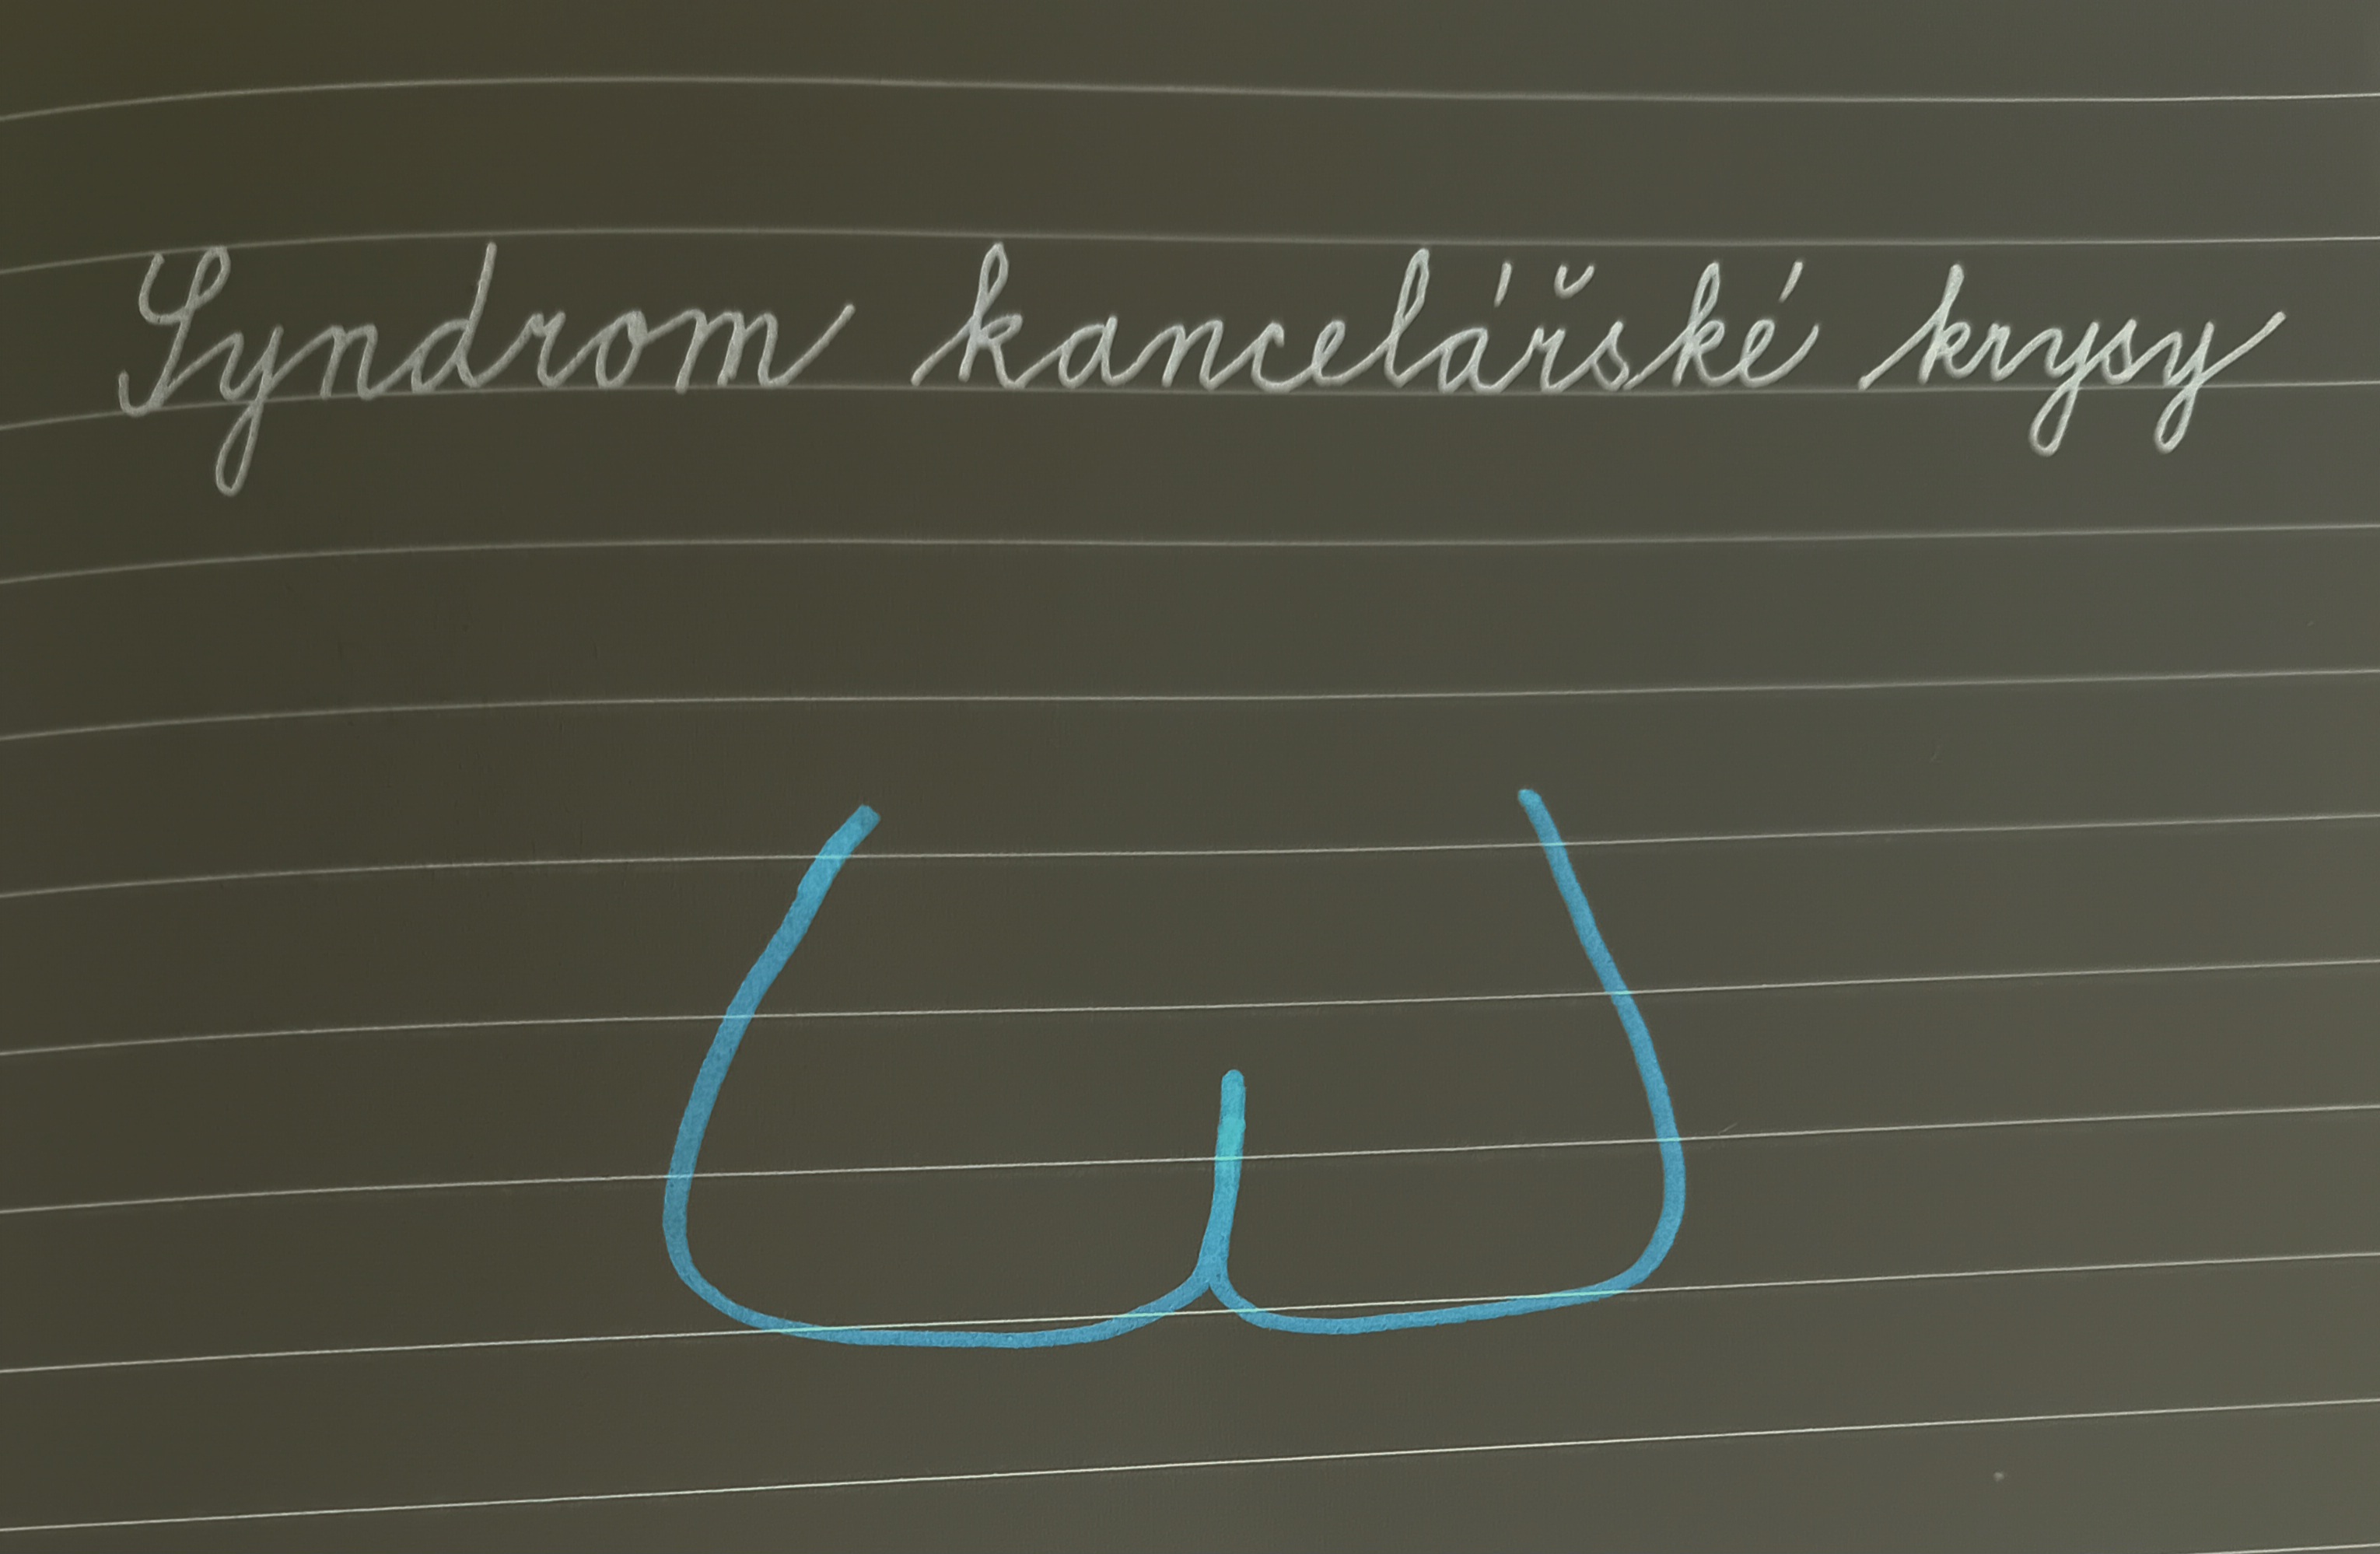 Syndrom kancelářské krysy